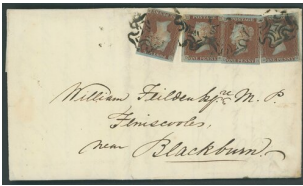 William Feilden Esqre. M. P.
Feniscowles,
near Blackburn.